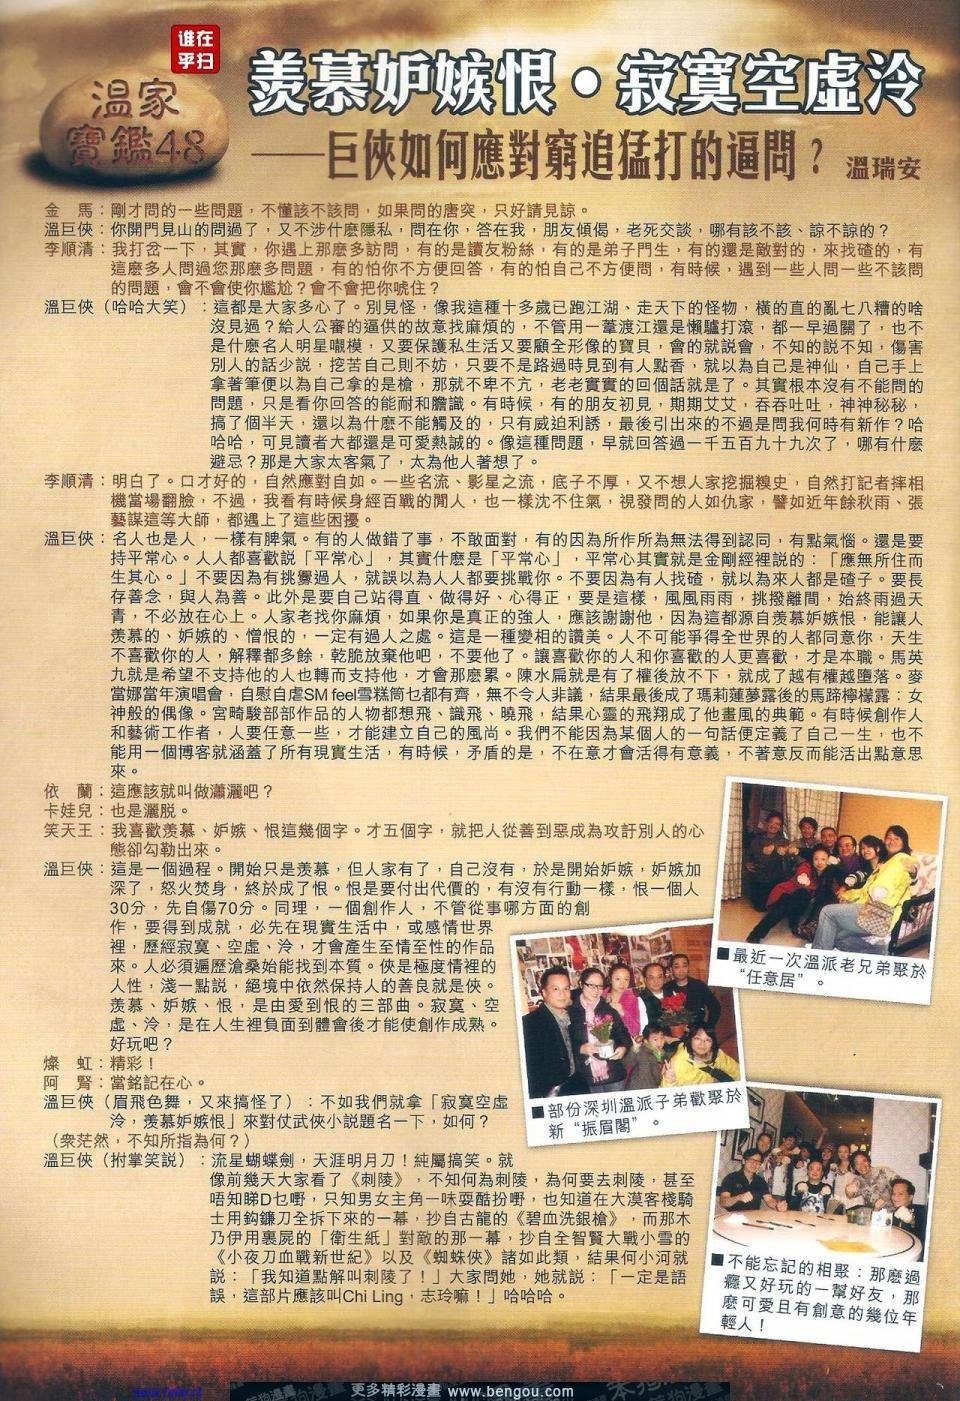 谁在
乎扫
溫家
寶鑑48
羨慕妒嫉恨・寂寞空虛冷
——巨俠如何應對窮追猛打的逼問？ 溫瑞安
金　馬：剛才問的一些問題，不懂該不該問，如果問的唐突，只好請見諒。
溫巨俠：你開門見山的問過了，又不涉什麽隱私，問在你，答在我，朋友傾偈，老死交談，哪有該不該、諒不諒的？
李順清：我打岔一下，其實，你遇上那麽多訪問，有的是讀友粉絲，有的是弟子門生，有的還是敵對的，來找碴的，有
這麽多人問過您那麽多問題，有的怕你不方便回答，有的怕自己不方便問，有時候，遇到一些人問一些不該問
的問題，會不會使你尷尬？會不會把你唬住？
溫巨俠（哈哈大笑）：這都是大家多心了。別見怪，像我這種十多歲已跑江湖、走天下的怪物，橫的直的亂七八糟的啥
沒見過？給人公審的逼供的故意找麻煩的，不管用一葦渡江還是懶驢打滾，都一早過關了，也不
是什麽名人明星嘅模，又要保護私生活又要顧全形像的寶貝，會的就說會，不知的說不知，傷害
別人的話少說，挖苦自己則不妨，只要不是路過時見到有人點香，就以為自己是神仙，自己手上
拿著筆便以為自己拿的是槍，那就不卑不亢，老老實實的回個話就是了。其實根本沒有不能問的
問題，只是看你回答的能耐和膽識。有時候，有的朋友初見，期期艾艾，吞吞吐吐，神神秘秘，
搞了個半天，還以為什麽不能觸及的，只有威迫利誘，最後引出來的不過是問我何時有新作？哈
哈哈，可見讀者大都還是可愛熱誠的。像這種問題，早就回答過一千五百九十九次了，哪有什麽
避忌？那是大家太客氣了，太為他人著想了。
李順清：明白了。口才好的，自然應對自如。一些名流、影星之流，底子不厚，又不想人家挖掘糗史，自然打記者摔相
機當場翻臉，不過，我看有時候身經百戰的聞人，也一樣沈不住氣，視發問的人如仇家，譬如近年餘秋雨、張
藝謀這等大師，都遇上了這些困擾。
溫巨俠：名人也是人，一樣有脾氣。有的人做錯了事，不敢面對，有的因為所作所為無法得到認同，有點氣惱。還是要
持平常心。人人都喜歡說「平常心」，其實什麽是「平常心」，平常心其實就是金剛經裡說的：「應無所住而
生其心。」不要因為有挑釁過人，就誤以為人人都要挑戰你。不要因為有人找碴，就以為來人都是碴子。要長
存善念，與人為善。此外是要自己站得直、做得好、心得正，要是這樣，風風雨雨，挑撥離間，始終雨過天
青，不必放在心上。人家老找你麻煩，如果你是真正的強人，應該謝謝他，因為這都源自羨慕妒嫉恨，能讓人
羨慕的、妒嫉的、憎恨的，一定有過人之處。這是一種變相的讚美。人不可能爭得全世界的人都同意你，天生
不喜歡你的人，解釋都多餘，乾脆放棄他吧，不要他了。讓喜歡你的人和你喜歡的人更喜歡，才是本職。馬英
九就是希望不支持他的人也轉而支持他，才會那麽累。陳水扁就是有了權後放不下，就成了越有權越墮落。麥
當娜當年演唱會，自慰自虐SM feel雪糕筒乜都有齊，無不令人非議，結果最後成了瑪莉蓮夢露後的馬蹄檸檬露：女
神般的偶像。宮畸駿部部作品的人物都想飛、識飛、曉飛，結果心靈的飛翔成了他畫風的典範。有時候創作人
和藝術工作者，人要任意一些，才能建立自己的風尚。我們不能因為某個人的一句話便定義了自己一生，也不
能用一個博客就涵蓋了所有現實生活，有時候，矛盾的是，不在意才會活得有意義，不著意反而能活出點意思
來。
依　蘭：這應該就叫做瀟灑吧？
卡娃兒：也是灑脫。
笑天王：我喜歡羨慕、妒嫉、恨這幾個字。才五個字，就把人從善到惡成為攻訐別人的心
態卻勾勒出來。
溫巨俠：這是一個過程。開始只是羨慕，但人家有了，自己沒有，於是開始妒嫉，妒嫉加
深了，怒火焚身，終於成了恨。恨是要付出代價的，有沒有行動一樣，恨一個人
30分，先自傷70分。同理，一個創作人，不管從事哪方面的創
作，要得到成就，必先在現實生活中，或感情世界
裡，歷經寂寞、空虛、冷，才會產生至情至性的作品
來。人必須遍歷滄桑始能找到本質。俠是極度情裡的
人性，淺一點說，絕境中依然保持人的善良就是俠。
羨慕、妒嫉、恨，是由愛到恨的三部曲。寂寞、空
虛、冷，是在人生裡負面到體會後才能使創作成熟。
好玩吧？
燦　虹：精彩！
阿　腎：當銘記在心。
溫巨俠（眉飛色舞，又來搞怪了）：不如我們就拿「寂寞空虛
冷，羨慕妒嫉恨」來對仗武俠小說題名一下，如何？
（衆茫然，不知所指為何？）
溫巨俠（拊掌笑說）：流星蝴蝶劍，天涯明月刀！純屬搞笑。就
像前幾天大家看了《刺陵》，不知何為刺陵，為何要去刺陵，甚至
唔知睇D乜嘢，只知男女主角一味耍酷扮嘢，也知道在大漠客棧騎
士用鈎鐮刀全拆下來的一幕，抄自古龍的《碧血洗銀槍》，而那木
乃伊用裹屍的「衛生紙」對敵的那一幕，抄自全智賢大戰小雪的
《小夜刀血戰新世紀》以及《蜘蛛俠》諸如此類，結果何小河就
說：「我知道點解叫刺陵了！」大家問她，她就說：「一定是語
誤，這部片應該叫Chi Ling，志玲嘛！」哈哈哈。
■最近一次溫派老兄弟聚於
“任意居”。
■部份深圳溫派子弟歡聚於
新“振眉閣”。
■不能忘記的相聚：那麽過
癮又好玩的一幫好友，那
麽可愛且有創意的幾位年
輕人！
更多精彩漫畫 www.bengou.com